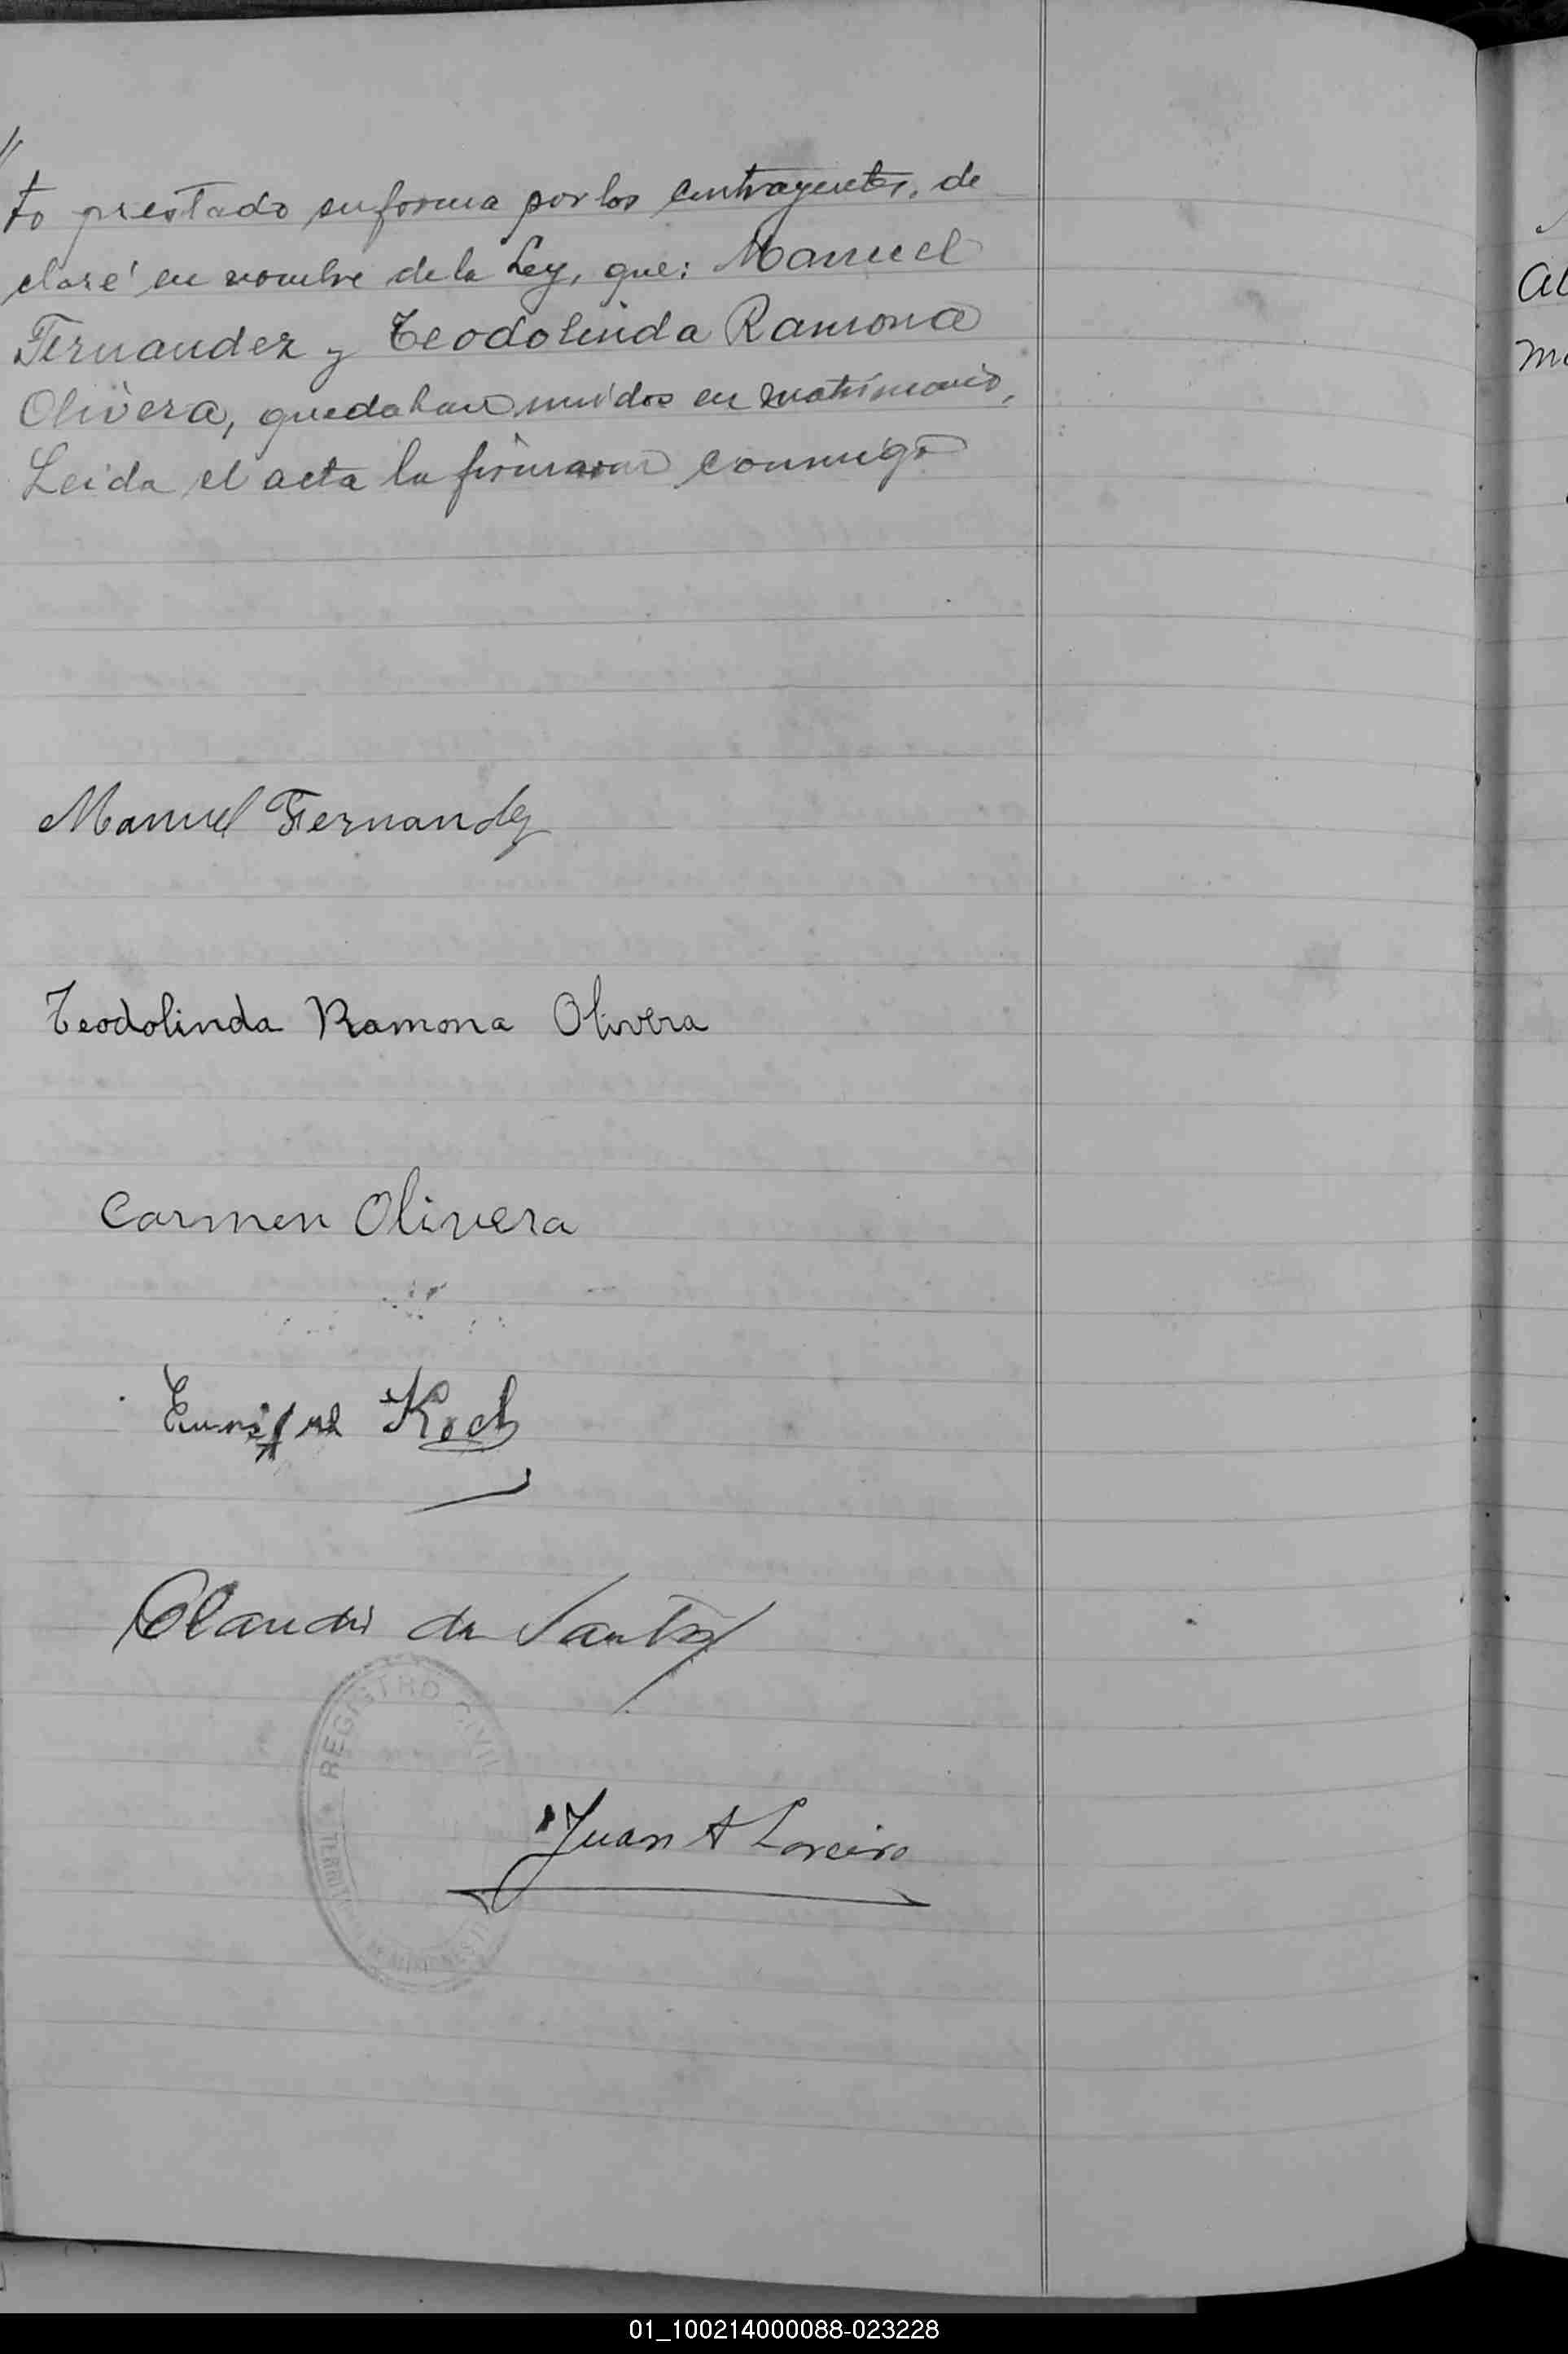 //
to prestado en forma por los contrayentes, de
claré en nombre de la Ley, que: Manuel
Fernandez y Teodolinda Ramona
Olivera, quedaban unidos en matrimonio,
Leida el acta la firmaron conmigo
Manuel Fernandez
Teodolinda Ramona Olivera
Carmen Olivera
Enrique Koch
Claudio da Santos
REGISTRO CIVIL
Juan A Loreiro
01_100214000088-023228